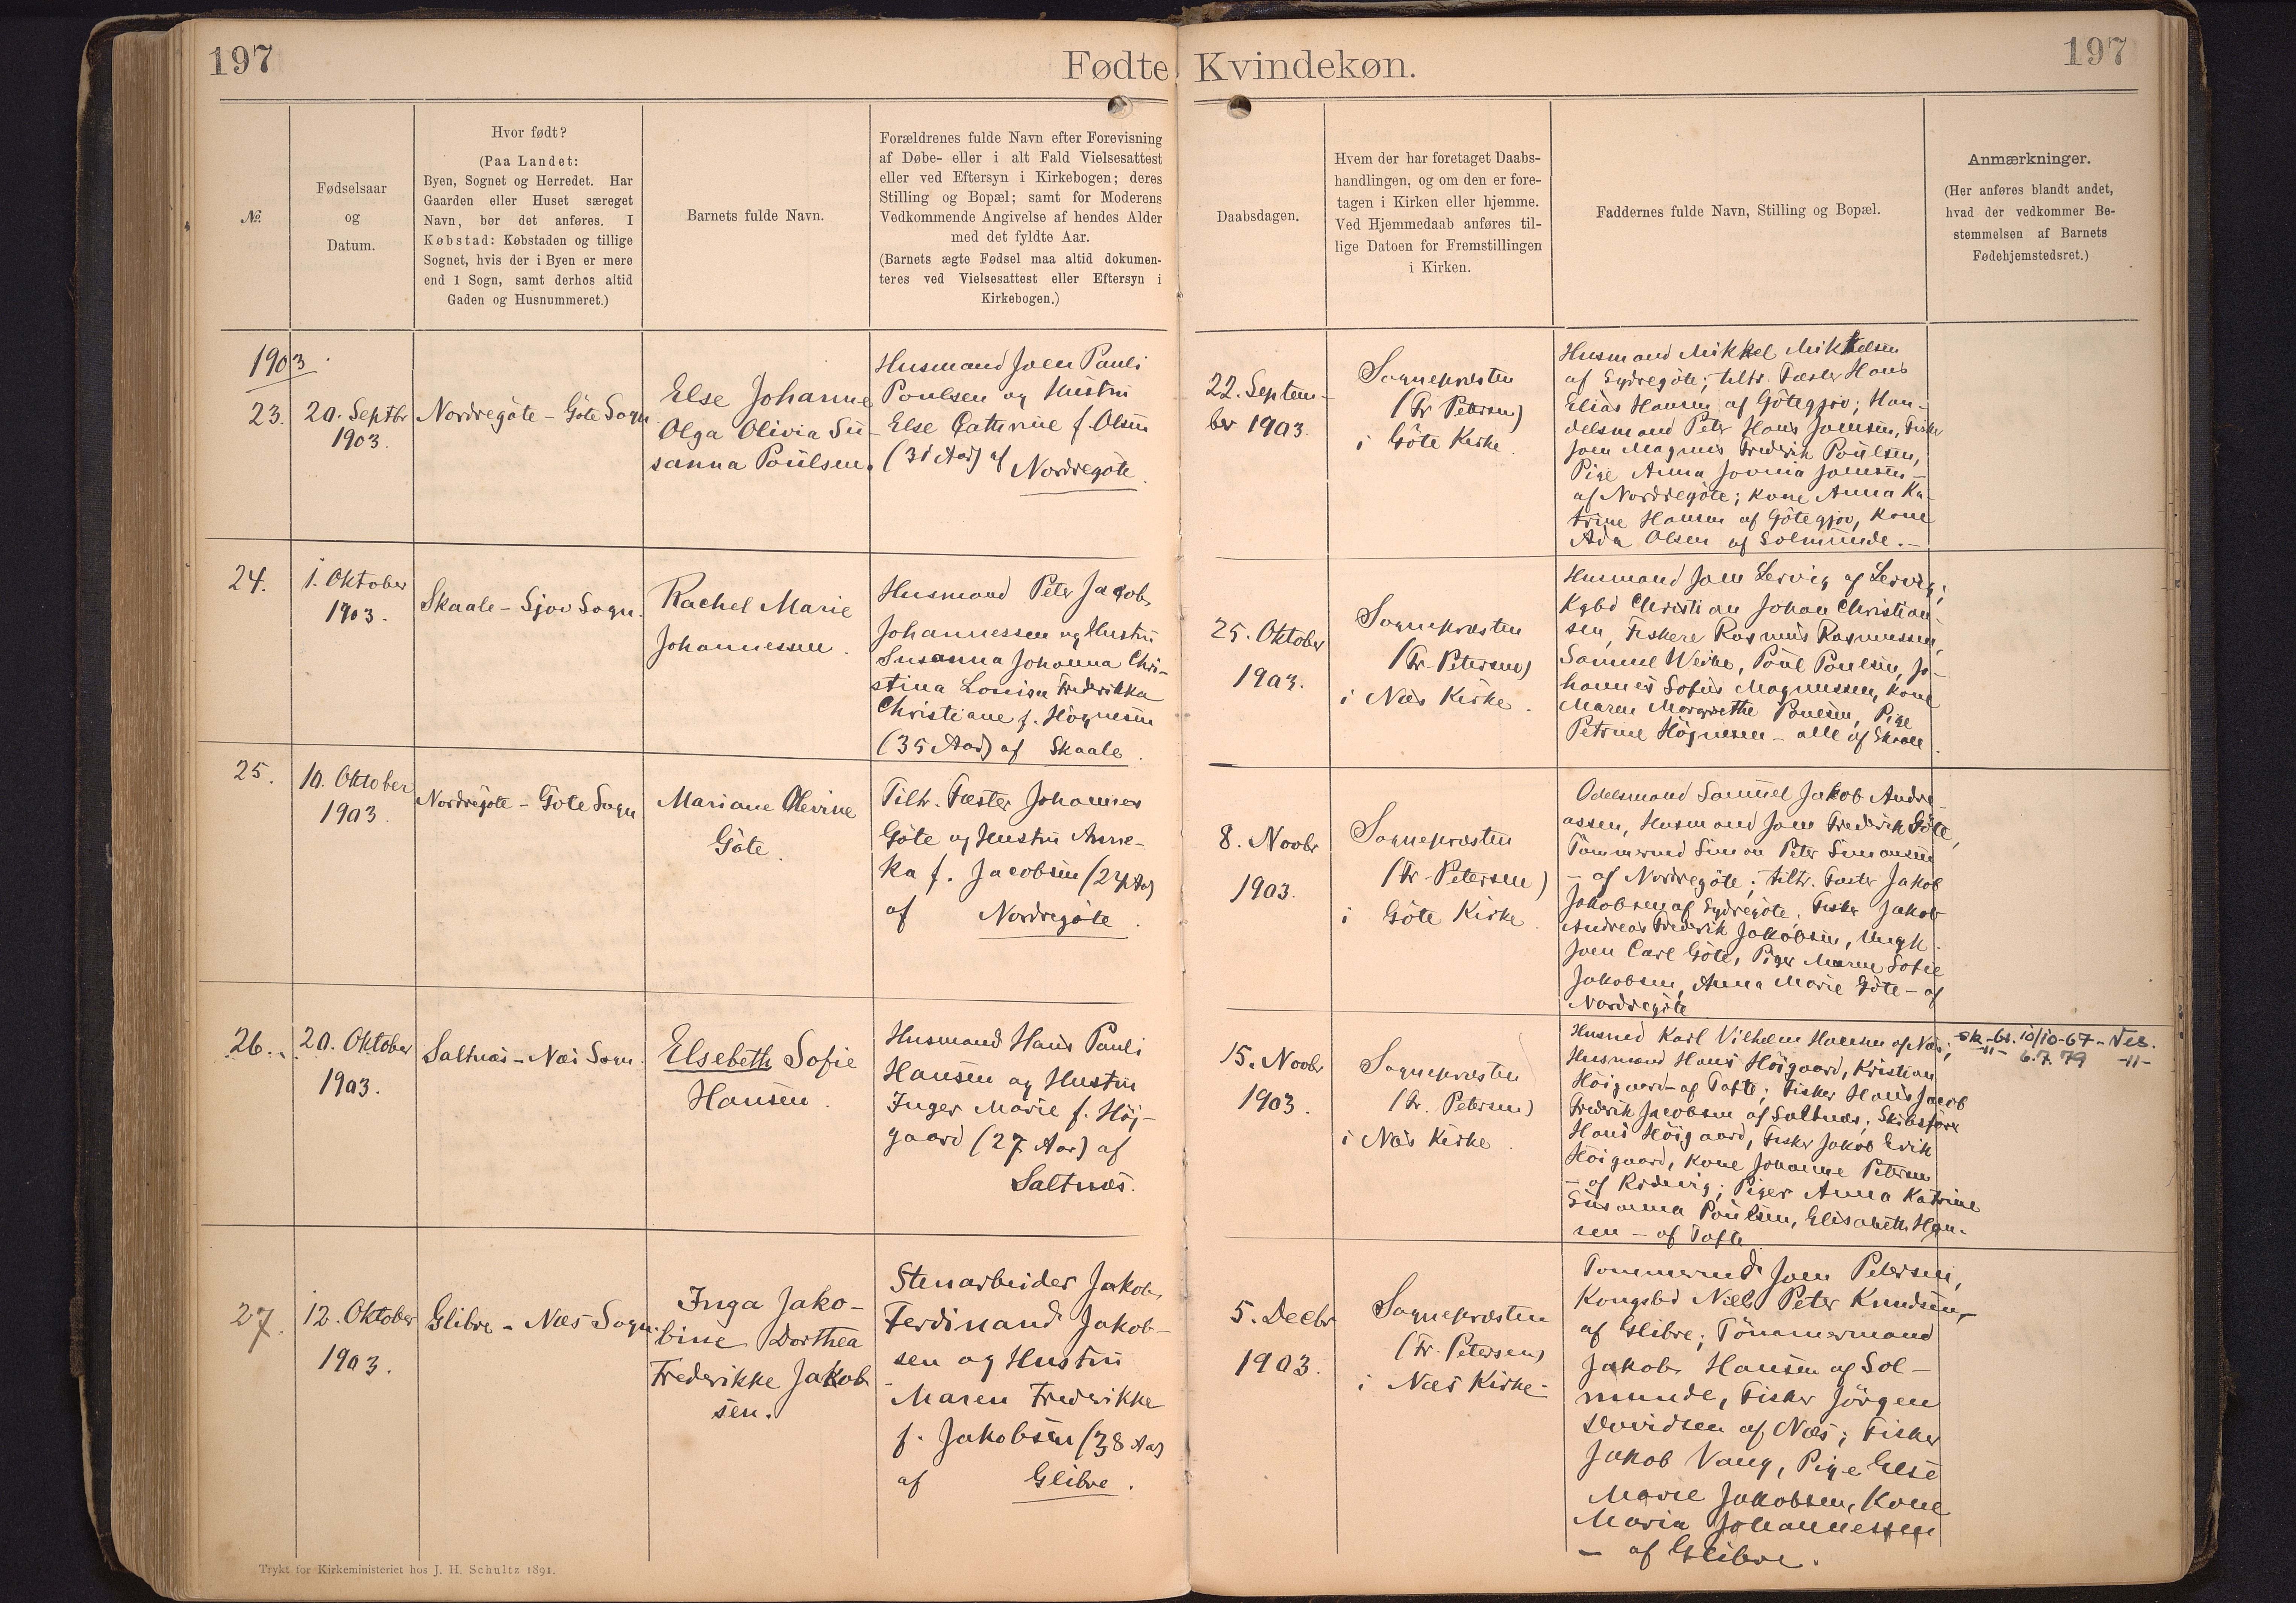 197
Fødte Kvindekøn.
197
№.
Fødselsaar
og
Datum.
Hvor født?
(Paa Landet:
Byen, Sognet og Herredet. Har
Gaarden eller Huset særeget
Navn, bør det anføres. I
Købstad: Købstaden og tillige
Sognet, hvis der i Byen er mere
end 1 Sogn, samt derhos altid
Gaden og Husnummeret.)
Barnets fulde Navn.
Forældrenes fulde Navn efter Forevisning
af Døbe- eller i alt Fald Vielsesattest
eller ved Eftersyn i Kirkebogen; deres
Stilling og Bopæl; samt for Moderens
Vedkommende Angivelse af hendes Alder
med det fyldte Aar.
(Barnets ægte Fødsel maa altid dokumen-
teres ved Vielsesattest eller Eftersyn i
Kirkebogen.)
Daabsdagen.
Hvem der har foretaget Daabs-
handlingen, og om den er fore-
tagen i Kirken eller hjemme.
Ved Hjemmedaab anføres til-
lige Datoen for Fremstillingen
i Kirken.
Faddernes fulde Navn, Stilling og Bopæl.
Anmærkninger.
(Her anføres blandt andet,
hvad der vedkommer Be-
stemmelsen af Barnets
Fødehjemstedsret.)
1903
23.
20. Septbr
1903.
Nordregöte - Göte Sogn
Else Johanne
Olga Olivia Su-
sanna Poulsen.
Husmand Joen Pauli
Poulsen og Hustru
Else Cathrine f. Olsen
(31 Aar) af Nordregöte.
22. Septem-
ber 1903.
Sognepræsten
(Fr Petersen)
i Göte Kirke.
Husmand Mikkel Mikkelsen
af Sydregöte; tiltr. Fæster Hans
Elias Hansen af Götegjov; Han-
delsmand Peter Hans Joensen, Fisker
Joen Magnus Frederik Poulsen,
Pige Anna Jovina Joensen -
af Nordregöte; Kone Anna Ka-
trine Hansen af Götegjov, Kone
Ada Olsen af Solmunde. -
24.
1. Oktober
1903.
Skaale - Sjov Sogn.
Rachel Marie
Johannessen.
Husmand Peter Jacob
Johannessen og Hustru
Susanna Johanna Chri-
stina Louisa Frederikka
Christiane f. Högnesen
(35 Aar) af Skaale.
25. Oktober
1903.
Sognepræsten
(Fr. Petersen)
i Næs Kirke.
Husmand Joen Lervig af Lervig;
Kgbd Christian Johan Christian-
sen, Fiskere Rasmus Rasmussen,
Samuel Weihe, Poul Poulsen, Jo-
hannes Sofus Magnussen, Kone
Maren Margrethe Poulsen, Pige
Petrine Högnesen - alle af Skaale.
25.
10. Oktober
1903.
Nordregöte - Göte Sogn
Mariane Olevine
Göte.
Tiltr. Fæster Johannes
Göte og Hustru Anne-
ka f. Jacobsen (24 Aar)
af Nordregöte.
8. Novbr
1903.
Sognepræsten
(Fr. Petersen)
i Göte Kirke.
Odelsmand Samuel Jakob Andre-
assen, Husmand Joen Frederik Göte,
Tömmermd Simon Peter Simonsen
- af Nordregöte; tiltr. Fæster Jakob
Jakobsen af Sydregöte; Fisker Jakob
Andreas Frederik Jakobsen, Ungk.
Joen Carl Göte, Piger Maren Sofie
Jakobsen, Anna Marie Göte - af
Nordregöte
26.
20. Oktober
1903.
Saltnæs - Næs Sogn.
Elsebeth Sofie
Hansen.
Husmand Hans Pauli
Hansen og Hustru
Inger Marie f. Höj-
gaard (27 Aar) af
Saltnæs.
15. Novbr
1903.
Sognepræsten
(Fr. Petersen)
i Næs Kirke.
Husmd Karl Vilhelm Hansen af Næs;
Husmand Hans Höigaard, Kristian
Höigaard - af Tofte; Fisker Hans Jacob
Frederik Jacobsen af Saltnæs; Skibsförer
Hans Höigaard, Fisker Jakob Erik
Höigaard, Kone Johanne Petersen
- af Ridevig; Piger Anna Katrine
Susanna Poulsen, Elisabeth Han-
sen - af Tofte
Sk-bs. 10/10-67 - Nes.
-11- 6.7.79 -11-
27.
12. Oktober
1903.
Glibre - Næs Sogn.
Inga Jako-
bine Dorthea
Frederikke Jakob
sen.
Stenarbeider Jakob
Ferdinand Jakob-
sen og Hustru
Maren Frederikke
f. Jakobsen (38 Aar)
af Glibre.
5. Decbr
1903.
Sognepræsten
(Fr. Petersen)
i Næs Kirke.
Tommermd Joen Petersen,
Kongsbd Niels Peter Knudsen,
af Glibre; Tömmermand
Jakob Hansen af Sol-
munde, Fisker Jörgen
Davidsen af Næs; Fisker
Jakob Vang, Pige Else
Marie Jakobsen, Kone
Maria Johannessen
- af Glibre.
Trykt for Kirkeministeriet hos J. H. Schultz 1891.